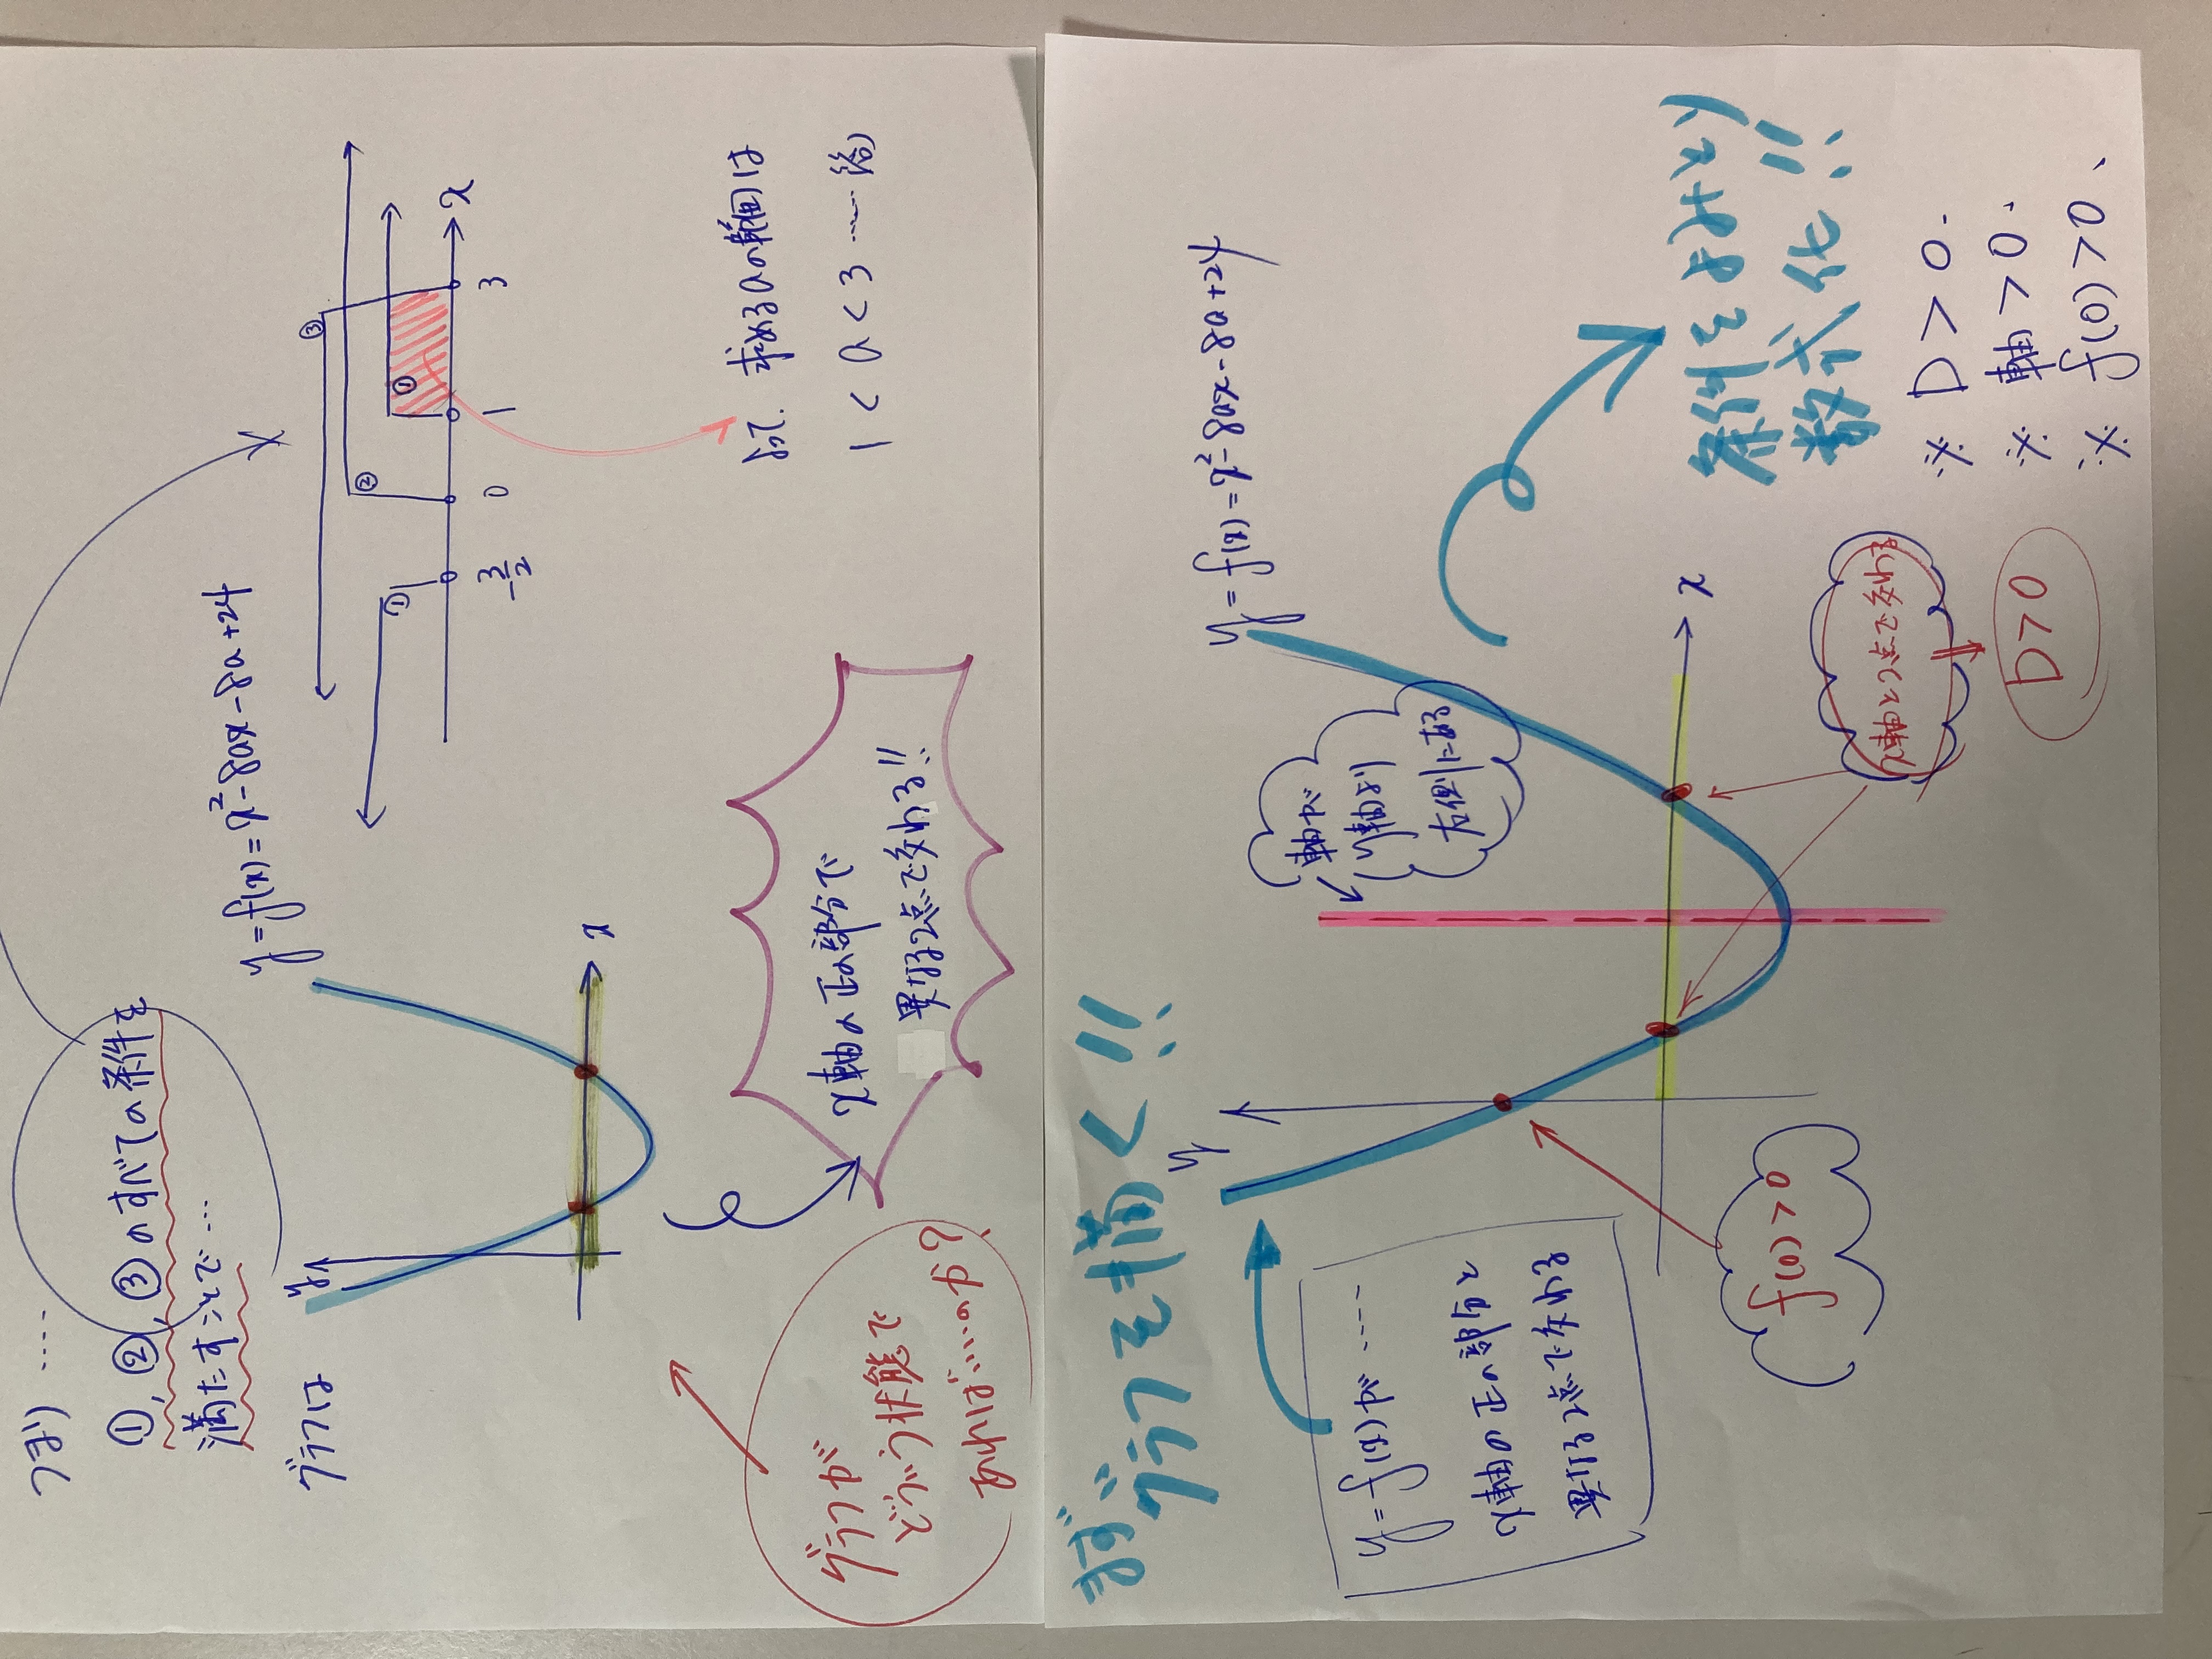 つまり ‥‥
①, ②, ③のすべての条件を
満たすことで ‥‥
グラフは
y
y = f(x) = x² - 8ax - 8a + 24
x
グラフが
どういう状態で
あればいいのか？
x軸の正の部分で
異なる2点で交わる!!
③
②
①
①
-3/2
0
1
3
x
よって、求めるaの範囲は
1 < a < 3 ……(答)
まずグラフを描く!!
y = f(x)が ‥‥
x軸の正の部分と
異なる2点で交わる
y
y = f(x) = x² - 8ax - 8a + 24
軸が
y軸より
右側にある
x
f(0) > 0
x軸と2点で交わる
D > 0
条件をもれなく
数式化!!
※ D > 0、
※ 軸 > 0、
※ f(0) > 0、